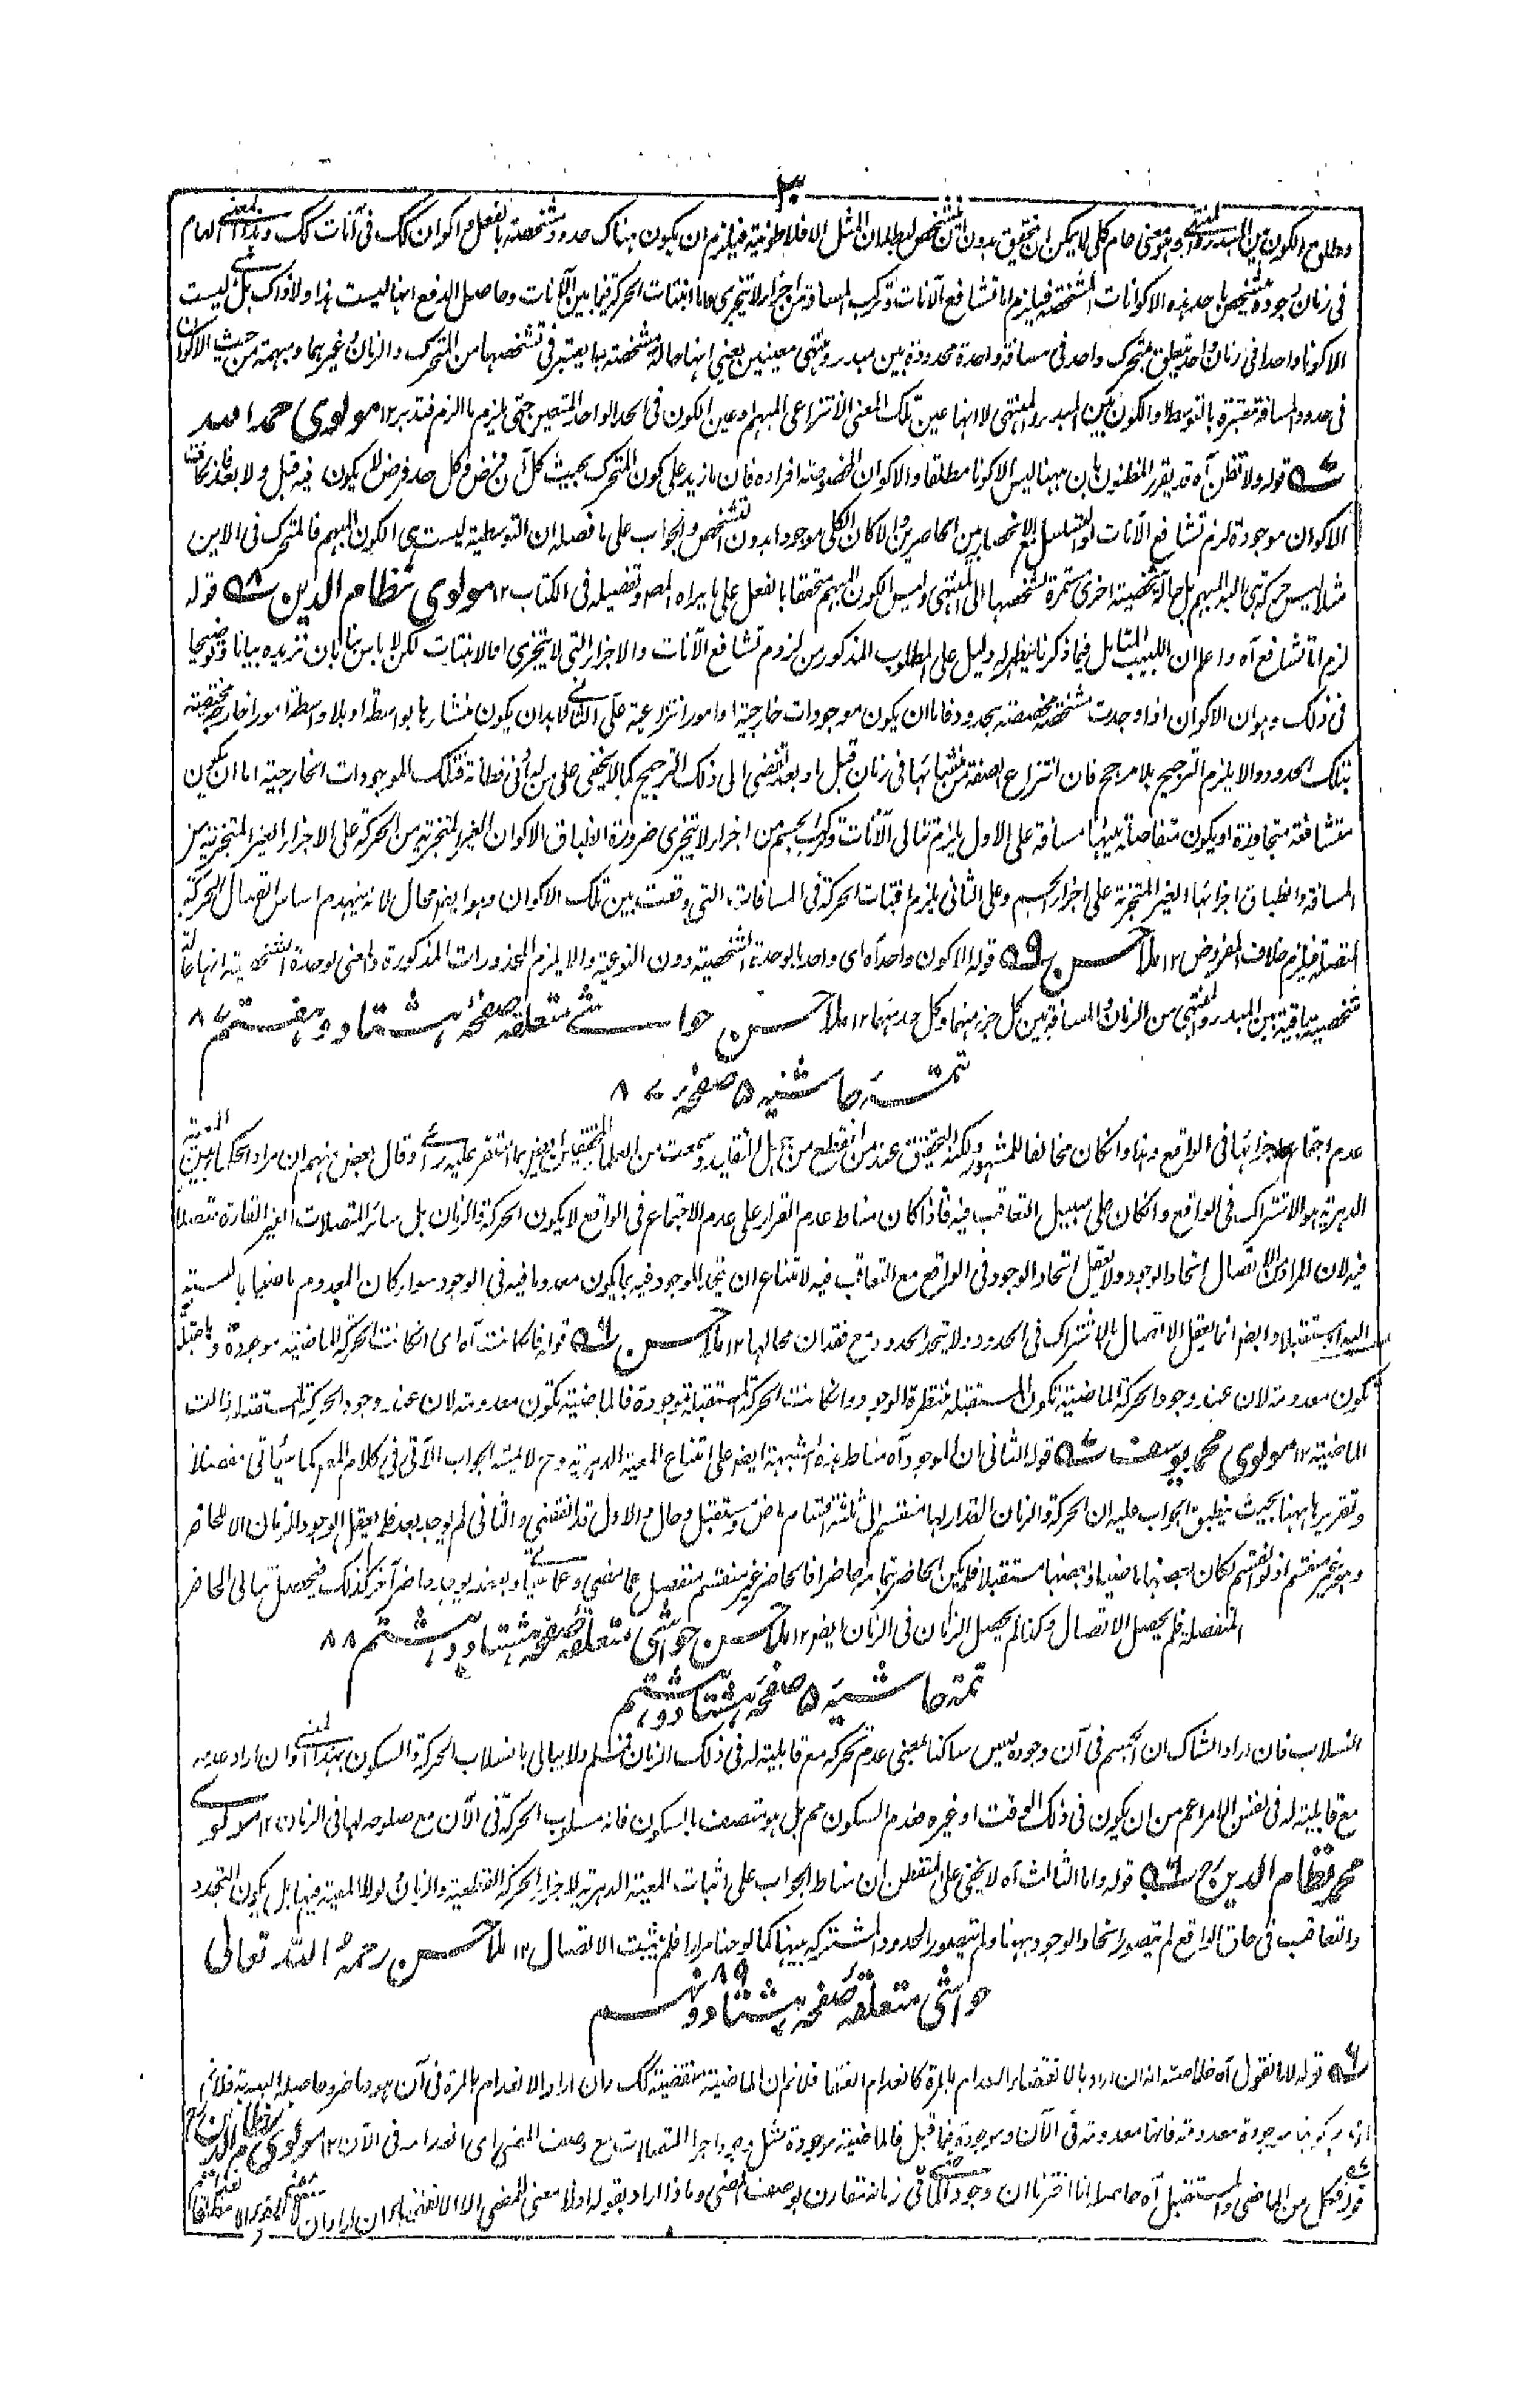 ٣٠
ومطلق الكون بين المبدء والمنتهى وهو معنى عام كلى لا يمكن ان يتحقق بدون التشخص لبطلان المثل الافلاطونية فيلزم ان يكون هناك حدود مشخصة بالفعل واكوان كك فى آنات كك وهذا المعنى العام
فى زمان وجوده متشخص باحد هذه الاكوانات المشخصة فيلزم اما تشافع الآنات وتركب المسافة من اجزاء لا تتجزى واما انبتات الحركة فيما بين الآنات وحاصل الدفع انها ليست هذا ولا ذاك بل ليست
الا كونا واحدا فى زمان واحد يتعلق بمتحرك واحد فى مسافة واحدة محدودة بين مبدء ومنتهى معينين يعنى انها حالة مشخصة بما يعتبر فى تشخصها من المتحرك والزمان وغيرهما ومبهمة من حيث الاكوان
فى حدود المسافة معتبرة بالتوسط والكون بين المبدء والمنتهى لا انها عين تلك المعنى الانتزاعى المبهم وعين الكون فى الحد الواحد المتعين حتى يلزم ما الزم فتدبر ١٢ مولوى حمد الله
قوله ولا تظن آه قد يقرر المظنون بان ههنا ليس الا كونا مطلقا والاكوان المخصوصة افراده فان ما زيد على كون المتحرك بحيث كل آن فرض وكل حد فرض لا يكون فيه قبل ولا بعد فاذا كانت
الاكوان موجودة لزم تشافع الآنات او التسلسل مع الانحصار بين الحاصرين والا كان الكلى موجودا بدون التشخص والجواب على ما فصله ان التوسطية ليست هى الكون المبهم فالمتحرك فى الاين
مثلا ليس حركته هى المبهم بل حالة شخصية اخرى مستمرة بشخصها الى المنتهى وليس الكون المبهم متحققا بالفعل على ما يراه المص وتفصيله فى الكتاب ١٢ مولوى نظام الدين قوله
لزم اما تشافع آه واعلم ان اللبيب المتأمل فيما ذكرنا يظهر له دليل على المطلوب المذكور من لزوم تشافع الآنات والاجزاء التى لا تتجزى او الانبتات لكن لا باس بنا بان نزيده بيانا وتوضيحا
فى ذلك وهو ان الاكوان اذا وجدت مشخصة مخصصة بحدود فاما ان يكون موجودات خارجية او امورا انتزاعية على الثانى لا بد ان يكون منشأ رها بواسطة او بلا واسطة امورا خارجية مختصة
بتلك الحدود والا يلزم الترجيح بلا مرجح فان انتزاع الصفة من منشأئها فى زمان قبل او بعد تفضى الى ذلك الترجيح كما لا يخفى على من له ادنى فطانة فتلك الموجودات الخارجية اما ان يكون
متشافعة متجاوزة او يكون متفاصلة بينها مسافة على الاول يلزم تتالى الآنات وتركب الجسم من اجزاء لا تتجزى ضرورة انطباق الاكوان الغير المتجزية من الحركة على الاجزاء الغير المتجزية من
المسافة وانطباق اجزائها الغير المتجزية على اجزاء الجسم وعلى الثانى يلزم انبتات الحركة فى المسافات التى وقعت بين تلك الاكوان وهو ايضا محال لانه ينهدم اساس اتصال الحركة
المتصلة فيلزم خلاف المفروض ١٢ ملا حسن قوله الا كون واحد آه اى واحد بالوحدة الشخصية دون النوعية والا يلزم المحذورات المذكورة واعنى بوحدة الشخصية انها حالة
شخصية باقية بين المبدء والمنتهى من الزمان والمسافة بين كل جزء منهما وكل حد منهما ١٢ ملا حسن حواشى متعلقه صفحه هشتاد و هفتم ٨٧
تتمه حاشيه ٥ صفحه ٨٧
عدم اجتماع اجزائها فى الواقع وهذا وان كان مخالفا للمشهور ولكنه التحقيق عند من انقطع من حبل التقليد وسمعت من العلماء المحققين بما استقر عليه رأى وقال بعض منهم ان مراد الحكماء بين المعية
الدهرية هو الاشتراك فى الواقع وان كان على سبيل التعاقب فيه فاذا كان مناط عدم القرار على عدم الاجتماع فى الواقع لا يكون الحركة والزمان بل سائر المتصلات الغير القارة متصلا
فيه لان المراد من الاتصال اتحاد الوجود ولا يعقل اتحاد الوجود فى الواقع مع التعاقب فيه لامتناع ان يتحد الموجود فيه بما يكون معدوما فيه فى الوجود سواء كان المعدوم ماضيا بالنسبة
اليه او مستقبلا وايضا انما يعقل الاتصال بالاشتراك فى الحدود ولا يتحد الحدود مع فقدان محالها ١٢ ملا حسن قوله فاما كانت آه اى ان كانت الحركة الماضية موجودة
تكون معدومة لان عند وجود الحركة الماضية تكون المستقبلة منتظرة الوجود وان كانت الحركة المستقبلة موجودة فالماضية تكون معدومة لان عند وجود الحركة المستقبلة زالت
الماضية ١٢ مولوى محمد يوسف قوله الثانى ان الموجود آه مناط هذه الشبهة ايضا على امتناع المعية الدهرية وح لا يمشه الجواب الآتى فى كلام المص كما سيأتى مفصلا
وتقريرها ههنا بحيث ينطبق الجواب عليه ان الحركة والزمان المقدار لها منقسم الى ثلثة اقسام ماض ومستقبل وحال والاول قد انقضى والثانى لم يوجد بعد فلم يعقل الوجود الزمان الا للحاضر
وهو غير منقسم اذ لو انقسم لكان بعضها ماضيا او بعضها مستقبلا فلم يكن الحاضر بتمامه حاضرا فالحاضر غير منقسم منفصل عما مضى وعما سيأتى وبعده يوجد حاضر آخر كذلك فيحصل تتالى الحاضر
المنفصلة فلم يحصل الاتصال وكذا لم يحصل الزمان فى الزمان ايضا ١٢ ملا حسن حواشى متعلقه صفحه هشتاد و هشتم ٨٨
تتمه حاشيه ٥ صفحه هشتاد و هشتم
السلاب فان اراد الشاك ان الجسم فى آن وجوده ليس ساكنا بمعنى عدم تحركه مع قابليته له فى ذلك الزمان فمسلم ولا يبالى بانسلاب الحركة والسكون بهذا المعنى وان اراد عدمه
مع قابليته له فى نفس الامر اعم من ان يكون فى ذلك الوقت او غيره فعدم السكون مم بل هو متصف بالسكون فانه مسلوب الحركة فى الآن مع صلوحه لها فى الزمان ١٢ مولوى
محمد نظام الدين رح قوله واما الثالث آه لا يخفى على المتفطن ان مناط الجواب على اثبات المعية الدهرية لاجزاء الحركة القطعية والزمان ولولا المعية فيها بل يكون التجدد
والتعاقب فى حاق الواقع لم يتصور اتحاد الوجود ههنا ولم تتصور الحدود المشتركة بينها كما لوحنا مرارا فلم يثبت الاتصال ١٢ ملا حسن رحمه الله تعالى
حواشى متعلقه صفحه هشتاد و نهم ٨٩
قوله لانا نقول آه خلاصته انه ان اراد بالانقضاء الانعدام بالمرة كانعدام العنقاء فلا نم ان الماضية منقضية كك وان اراد الانعدام بالمرة فى آن هو حاضر
موجودة معدومة فانها معدومة فى الآن وموجودة فيما قبل فالماضية موجودة مثل وجود اجزاء المتصلات مع وصف المضى اى انعدامه فى الآن ١٢ مولوى نظام الدين
قوله فكل من الماضى والمستقبل آه حاصله انا اخترنا ان وجود الماضى فى زمانه مقارن بوصف المضى وما ذا اراد بقوله اولا معنى للمضى الا الانقضاء ان اراد ان